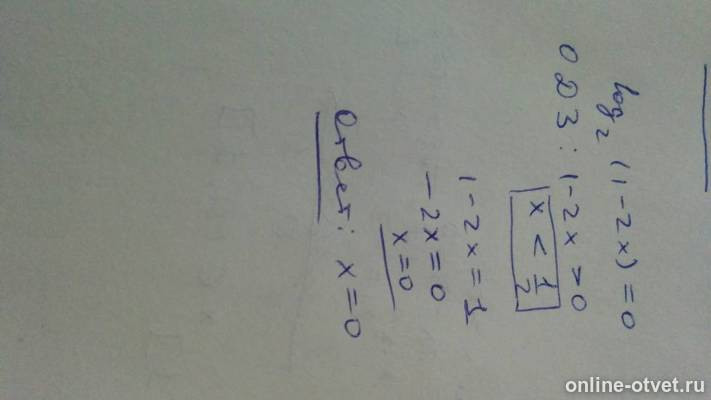 log₂ (1-2x) = 0
ОДЗ: 1-2x > 0
x < 1/2
1-2x = 1
-2x = 0
x = 0
Ответ: x = 0
online-otvet.ru